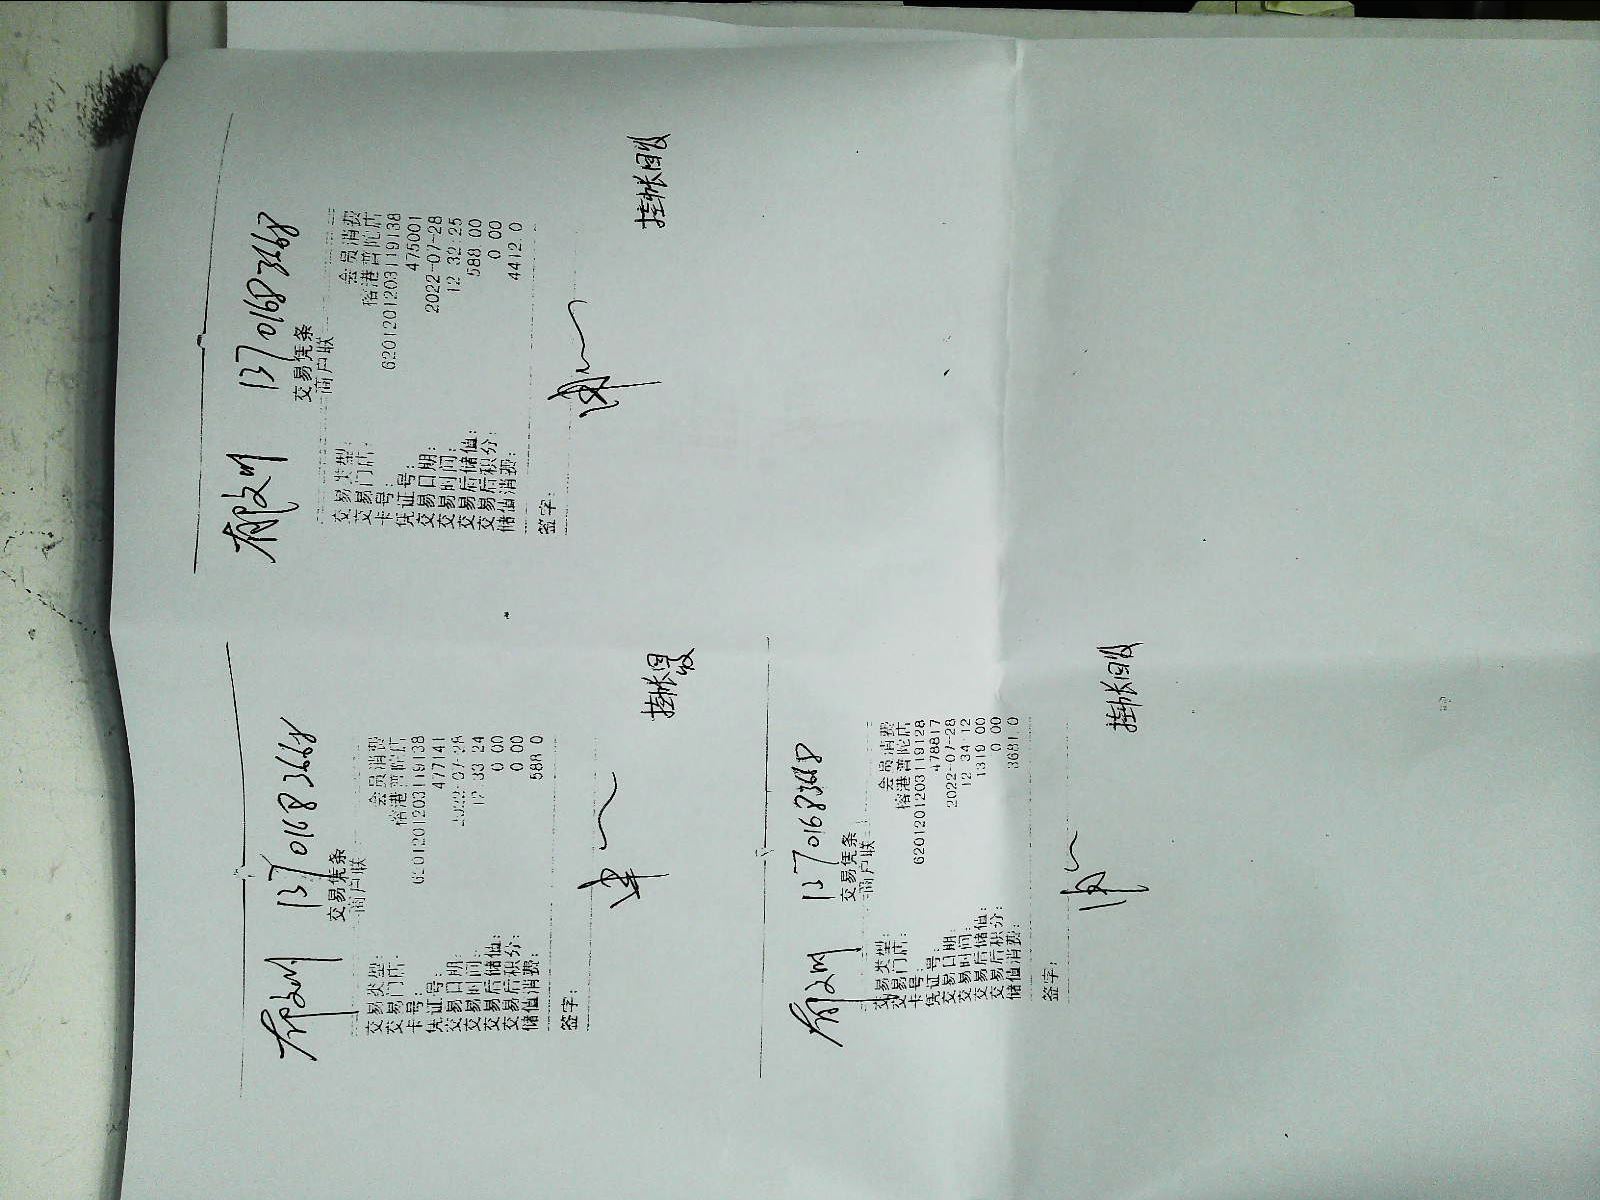 郁文明 13701683668
交易凭条
商户联
交易类型: 会员消费
交易门店: 榕港普陀店
卡号: 6201201203119138
凭证号: 477141
交易日期: 2022-07-28
交易时间: 12 33 24
交易后储值: 0 00
交易后积分: 0 00
储值消费: 588 0
签字:
挂帐回收
郁文明 13701683668
交易凭条
商户联
交易类型: 会员消费
交易门店: 榕港普陀店
卡号: 6201201203119138
凭证号: 475001
交易日期: 2022-07-28
交易时间: 12 32:25
交易后储值: 588.00
交易后积分: 0 00
储值消费: 4412.0
签字:
挂帐回收
郁文明 13701683668
交易凭条
商户联
交易类型: 会员消费
交易门店: 榕港普陀店
卡号: 6201201203119128
凭证号: 478817
交易日期: 2022-07-28
交易时间: 12 34 12
交易后储值: 1319 00
交易后积分: 0 00
储值消费: 3681 0
签字:
挂帐回收